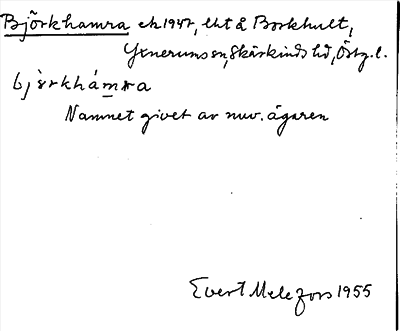 Björkhamra ek 1947, lht å Borkhult,
Yxnerums sn, Skärkinds hd, Östg. l.
bjǒrkhámra
Namnet givet av nuv. ägaren
Evert Melefors 1955